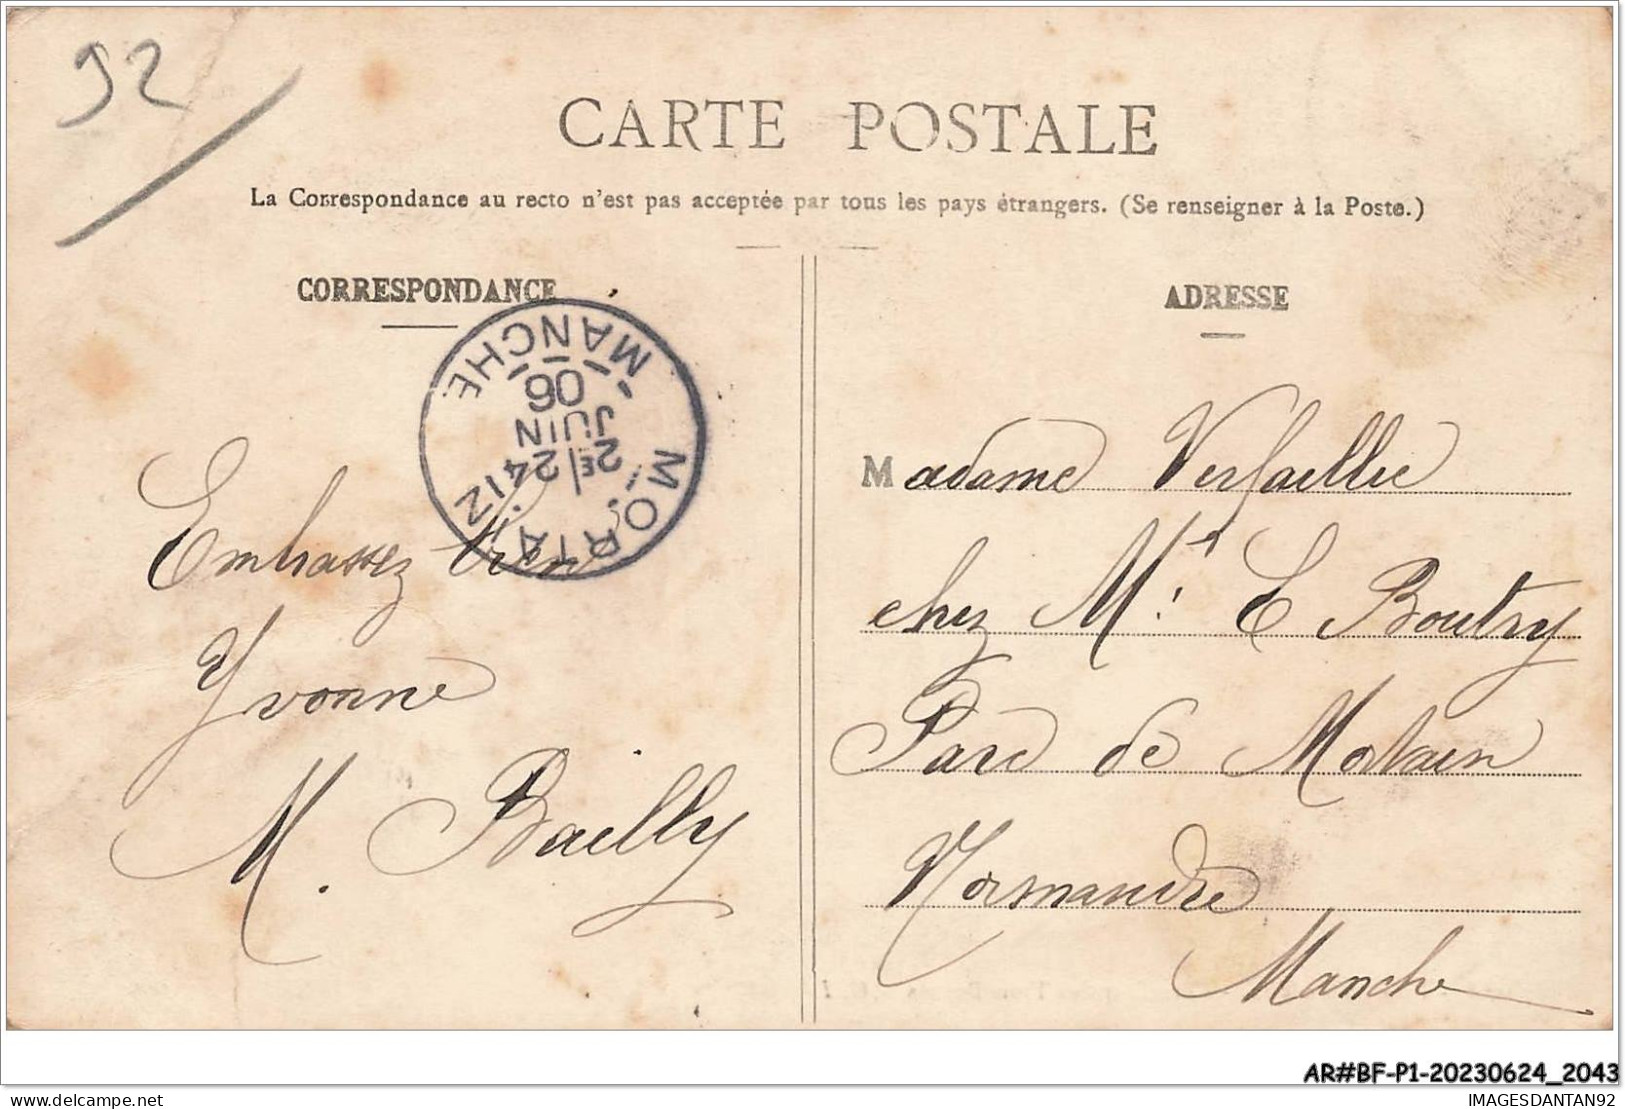 92
CARTE POSTALE
La Correspondance au recto n'est pas acceptée par tous les pays étrangers. (Se renseigner à la Poste.)
CORRESPONDANCE
MORTAIN
2E/24
JUIN
06
MANCHE
Embrassez bien
Yvonne
M. Bailly
ADRESSE
Madame Verfaillie
chez Mr E Boutry
Parc de Mortain
Normandie
Manche
AR#BF-P1-20230624_2043
delcampe.net
IMAGESDANTAN92